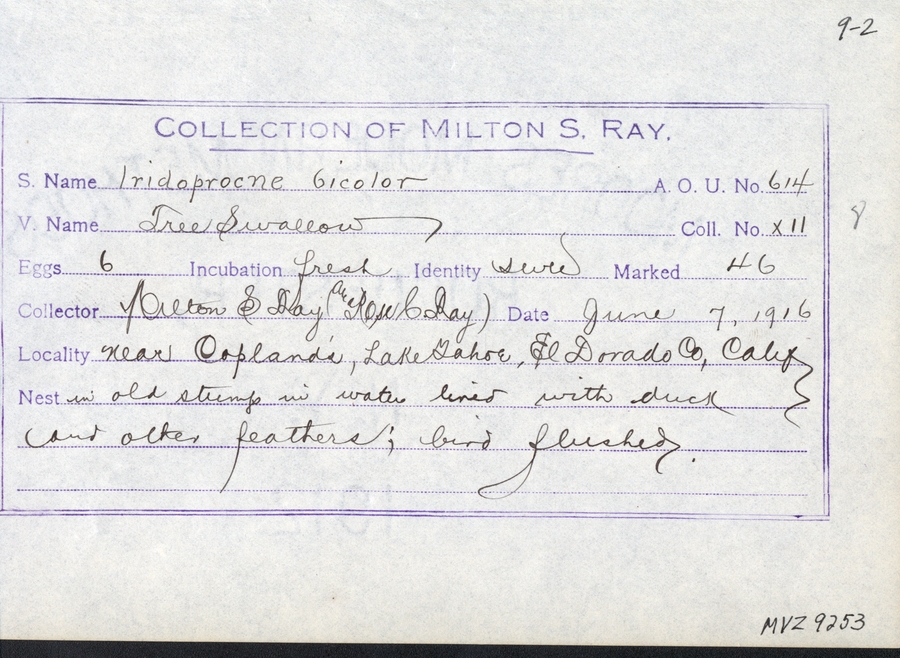 9-2
COLLECTION OF MILTON S. RAY.
S. Name Iridoprocne bicolor A. O. U. No. 614
V. Name Tree Swallow Coll. No. XII
8
Eggs 6 Incubation fresh Identity sure Marked 46
Collector Milton S Ray (and Rose C Ray) Date June 7, 1916
Locality near Copland's, Lake Tahoe, El Dorado Co, Calif
Nest in old stump in water lined with duck
(and other feathers; bird flushed.
MVZ 9253